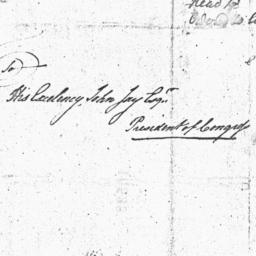 Read 
To
His Excelency John Jay Esqr.
President of Congress